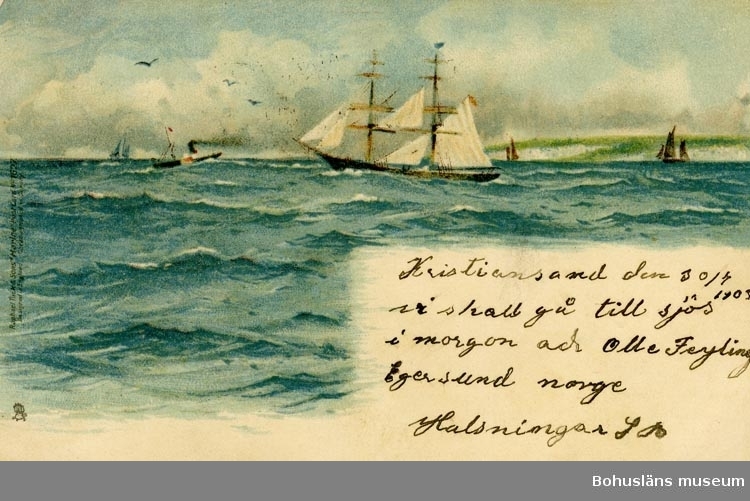 Kristiansand den 30/4
1903
vi skall gå till sjös
i morgon adr Olle Feyling
Egersund norge
Halsningar
Bohusläns museum